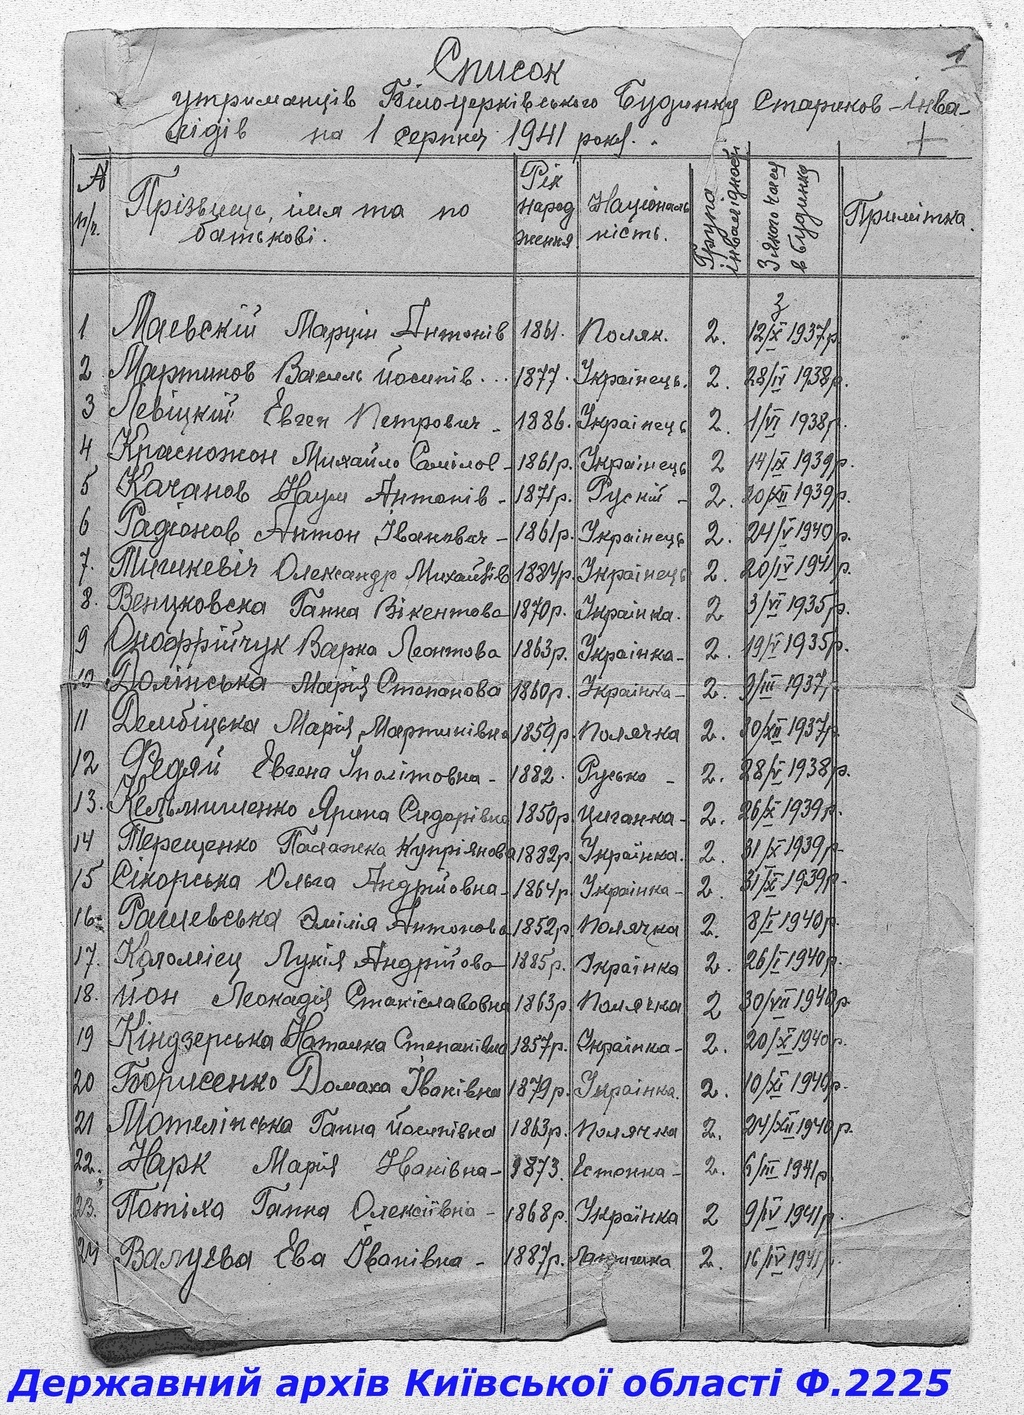 1
Список
утриманців Білоцерківського Будинку Стариков-Інва-
лідів на 1 серпня 1941 року.
№ п/п. Прізвище, імя та по батькові. Рік народження Національність. Група інвалідності З якого часу в будинку Примітка.
1 Маевскій Марцін Антонів 1861. Поляк. 2. 12/IX 1937р.
2 Мартинов Василь Йосипів... 1877. Українець. 2. 28/IV 1938р.
3 Левіцкій Евген Петрович - 1886. Українець 2. 1/VI 1938р.
4 Красножон Михайло Самілов - 1861р. Українець 2 14/IX 1939р.
5 Качанов Наум Антонів - 1871р. Рускій - 2. 20/XII 1939р.
6 Радіонов Антон Іванович - 1861р. Українець 2. 24/V 1940р.
7. Тишкевіч Олександр Михайлів 1884р. Українець 2. 20/IV 1941р.
8. Венцковска Ганна Вікентова 1870р. Українка. 2 3/VI 1935р.
9 Онофрійчук Варка Леонтова 1863р. Українка - 2. 19/V 1935р.
10 Долінська Марія Степанова 1860р. Українка - 2. 9/III 1937р
11 Дембіцька Марія Мартинівна 1859р. Полячка 2. 30/XII 1937р
12 Федяй Евгена Іполітовна - 1882. Русько - 2. 28/V 1938р.
13. Кельмишенко Ярина Сидорівна 1850р. Циганка - 2. 26/X 1939р.
14 Терещенко Палажка Купріянова 1882р. Українка. 2. 31/X 1939р.
15 Сікорська Ольга Андрійовна - 1864р. Українка - 2. 31/XI 1939р.
16. Рашевська Емілія Антонова 1852р. Полячка 2. 8/I 1940р.
17. Коломіец Лукія Андрійова 1885р. Українка 2. 26/I 1940р.
18. Йон Леокадія Станіславовна 1863р. Полячка 2 30/VII 1940р
19 Кіндзерська Наталка Степанівна 1857р. Українка - 2. 20/X 1940р.
20 Борисенко Домаха Іванівна 1879р. Українка. 2. 10/XI 1940р.
21 Мотелінська Ганна Йосипівна 1863р. Полячка 2. 24/XII 1940р.
22. Нарк Марія Іванівна - 1873. Естонка - 2. 5/III 1941р
23. Потіха Ганна Олексіївна - 1868р. Українка 2 9/IV 1941р.
24 Валуева Ева Іванівна - 1887р. Латишка 2. 16/IV 1941р.
Державний архів Київської області Ф.2225